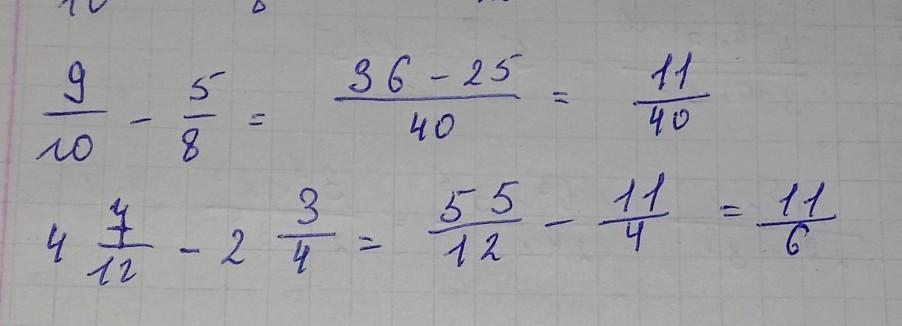 9/10 - 5/8 = 36 - 25/40 = 11/40
4 7/12 - 2 3/4 = 55/12 - 11/4 = 11/6